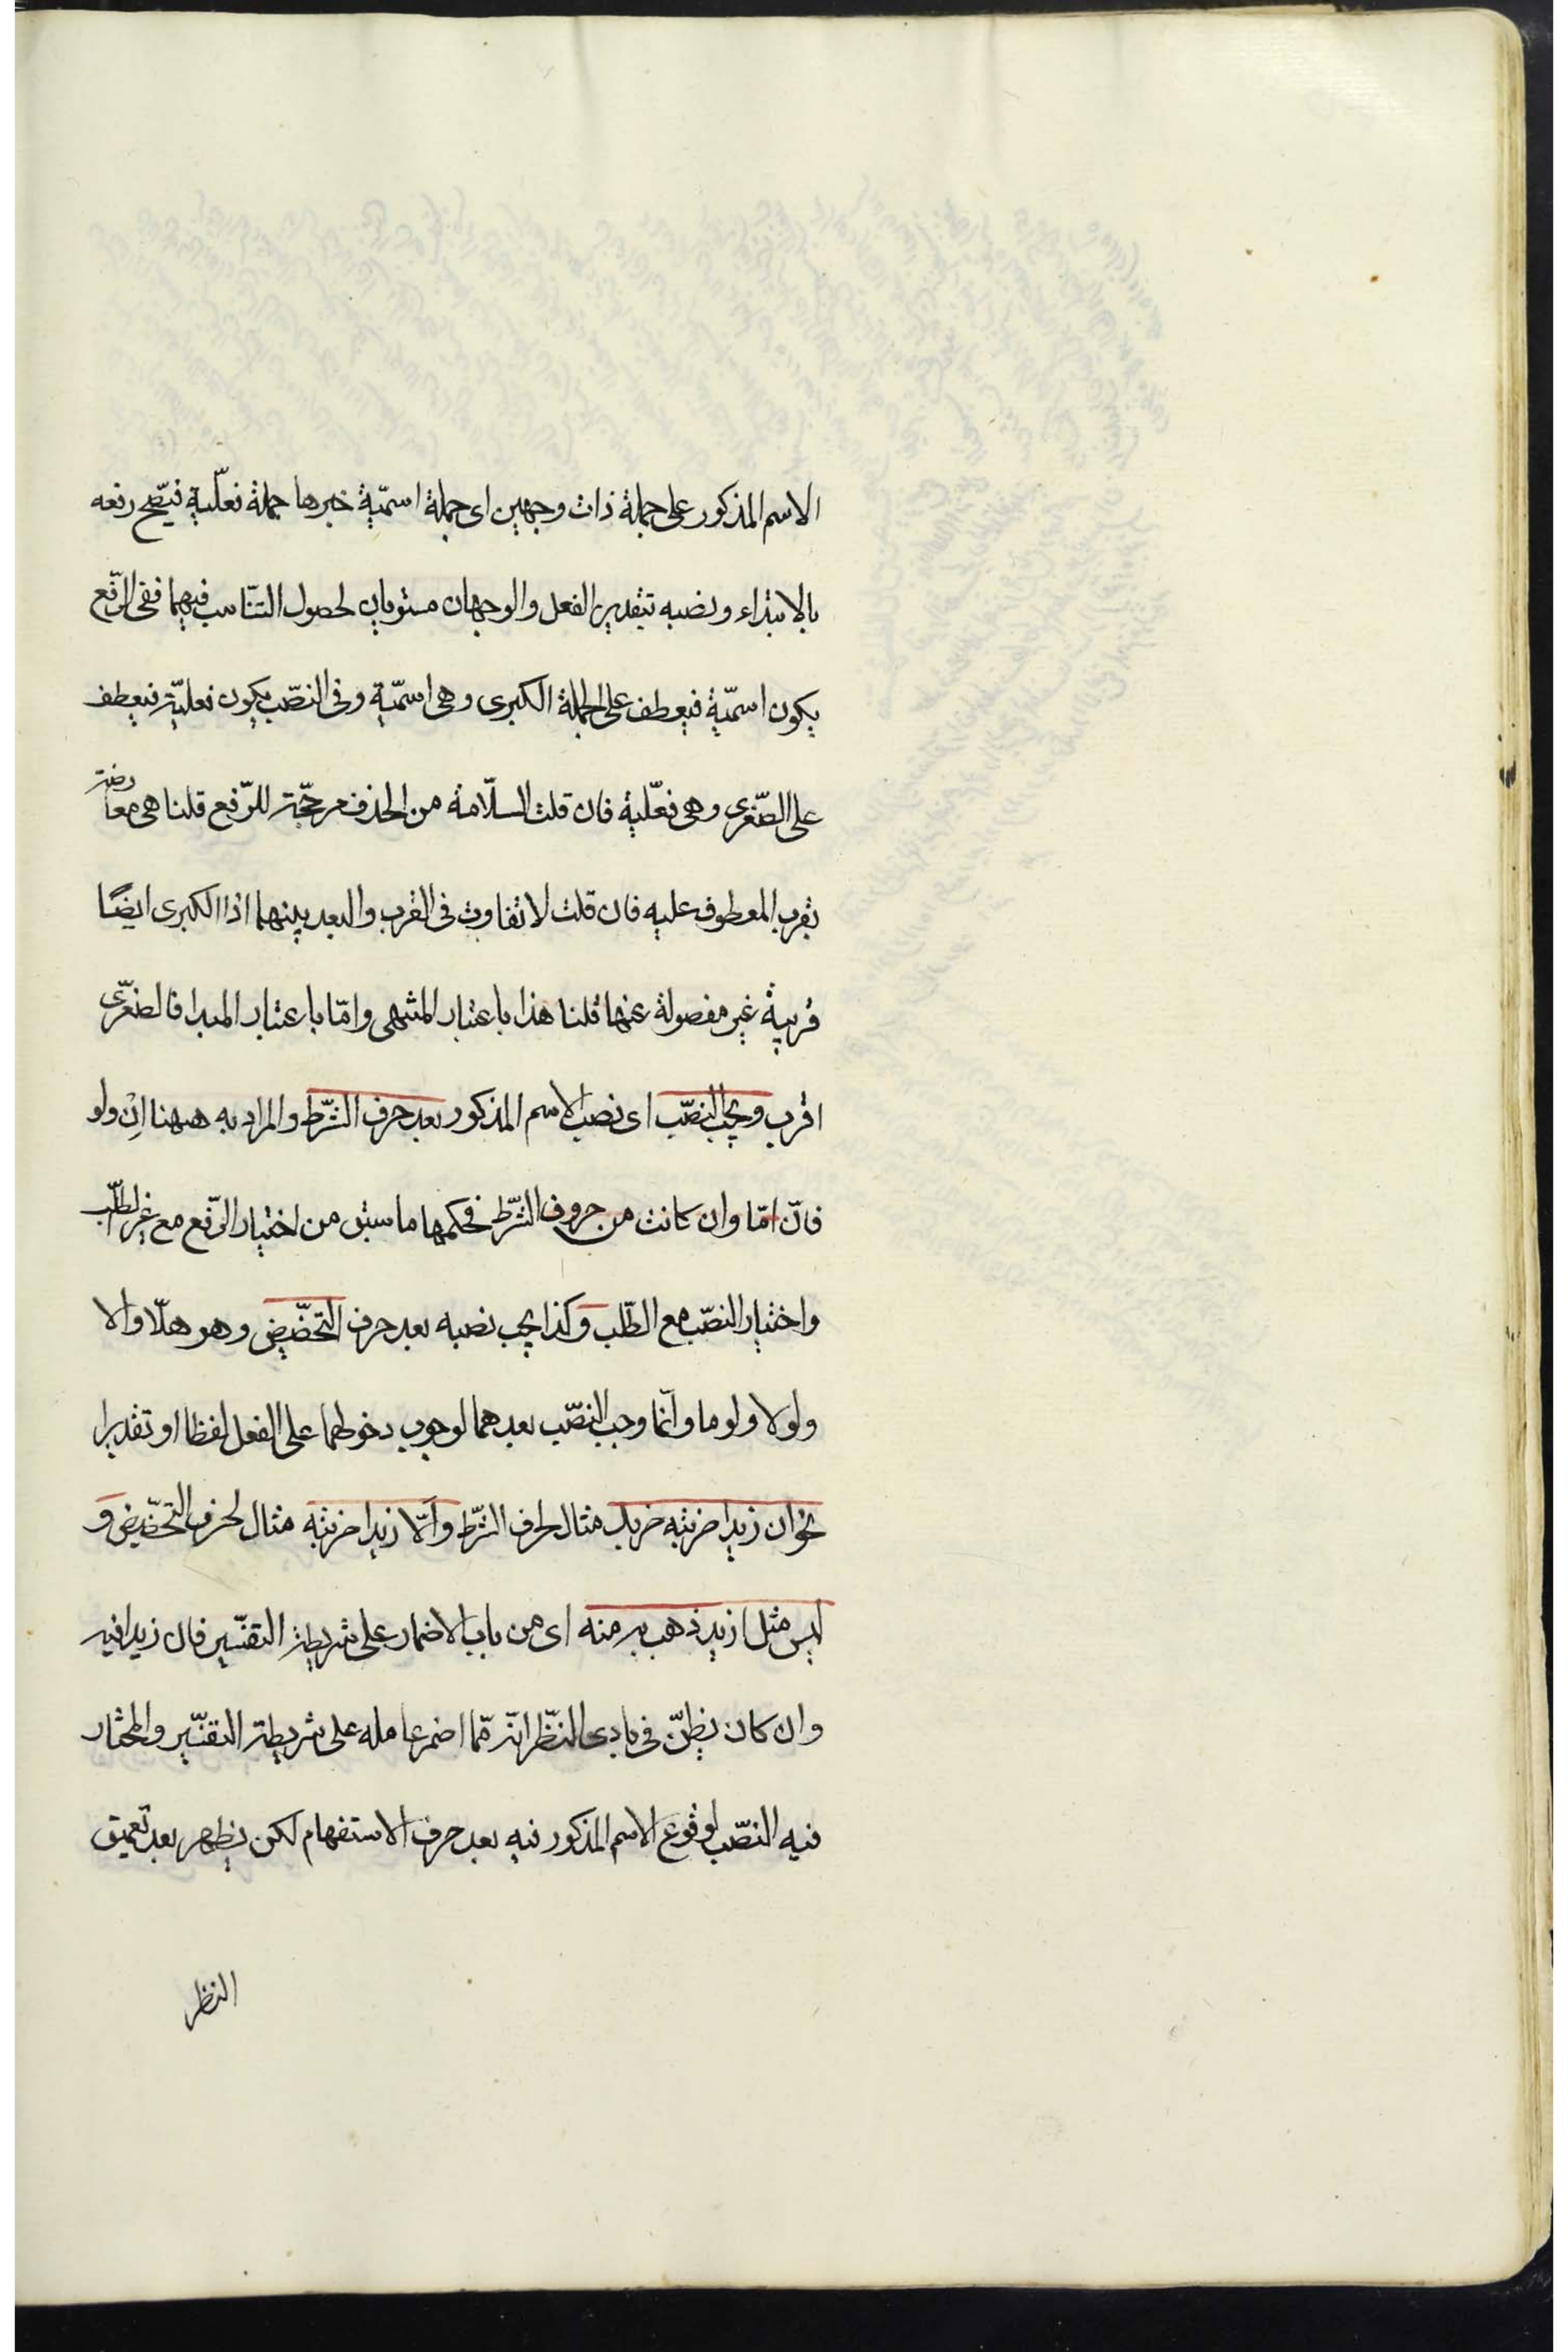 الاسم المذكور على جملة ذات وجهين اى جملة اسميّة خبرها جملة فعلّية فيصّح رفعه
بالابتداء ونصبه بتقدير الفعل والوجهان مستويان لحصول التنّاسب فيهما ففى الرّفع
يكون اسميّة فيعطف على الجملة الكبرى وهى اسميّة وفى النصّب يكون فعليّة فيعطف
على الصّغرى وهى فعّلية فان قلت السلّامة من الحذف مرجّحة للرّفع قلنا هى معارضة
بقرب المعطوف عليه فان قلت لا تفاوت فى القرب والبعد بينهما اذ الكبرى ايضًا
قريبة غير مفصولة عنها قلنا هذا باعتبار المنتهى وامّا باعتبار المبدا فالصغرّى
اقرب ويجب النصّب اى نصب الاسم المذكور بعد حرف الشّرط والمراد به ههنا اِنْ ولو
فانّ امّا وان كانت من حروف الشّرط فحكمها ما سبق من اختيار الرّفع مع غير الطلّب
واختيار النصّب مع الطّلب وكذا يجب نصبه بعد حرف التحضّيض وهو هلّا والا
ولولا ولوما وانّما وجب النصّب بعدهما لوجوب دخولهما على الفعل لفظا او تقديرا
نحو ان زيدا ضربته ضربك مثال لحرف الشّرط والّا زيدا ضربته مثال لحرف التحّضيض و
ليس مثل ازيد ذهب به منه اى من باب الاضمار على شريطة التفسّير فان زيدا فيه
وان كان يظنّ فى بادى النظّر انّه ممّا اضمر عامله على شريطة التفسّير والمختار
فيه النصّب لوقوع الاسم المذكور فيه بعد حرف الاستفهام لكن يظهر بعد تعميق
النظر